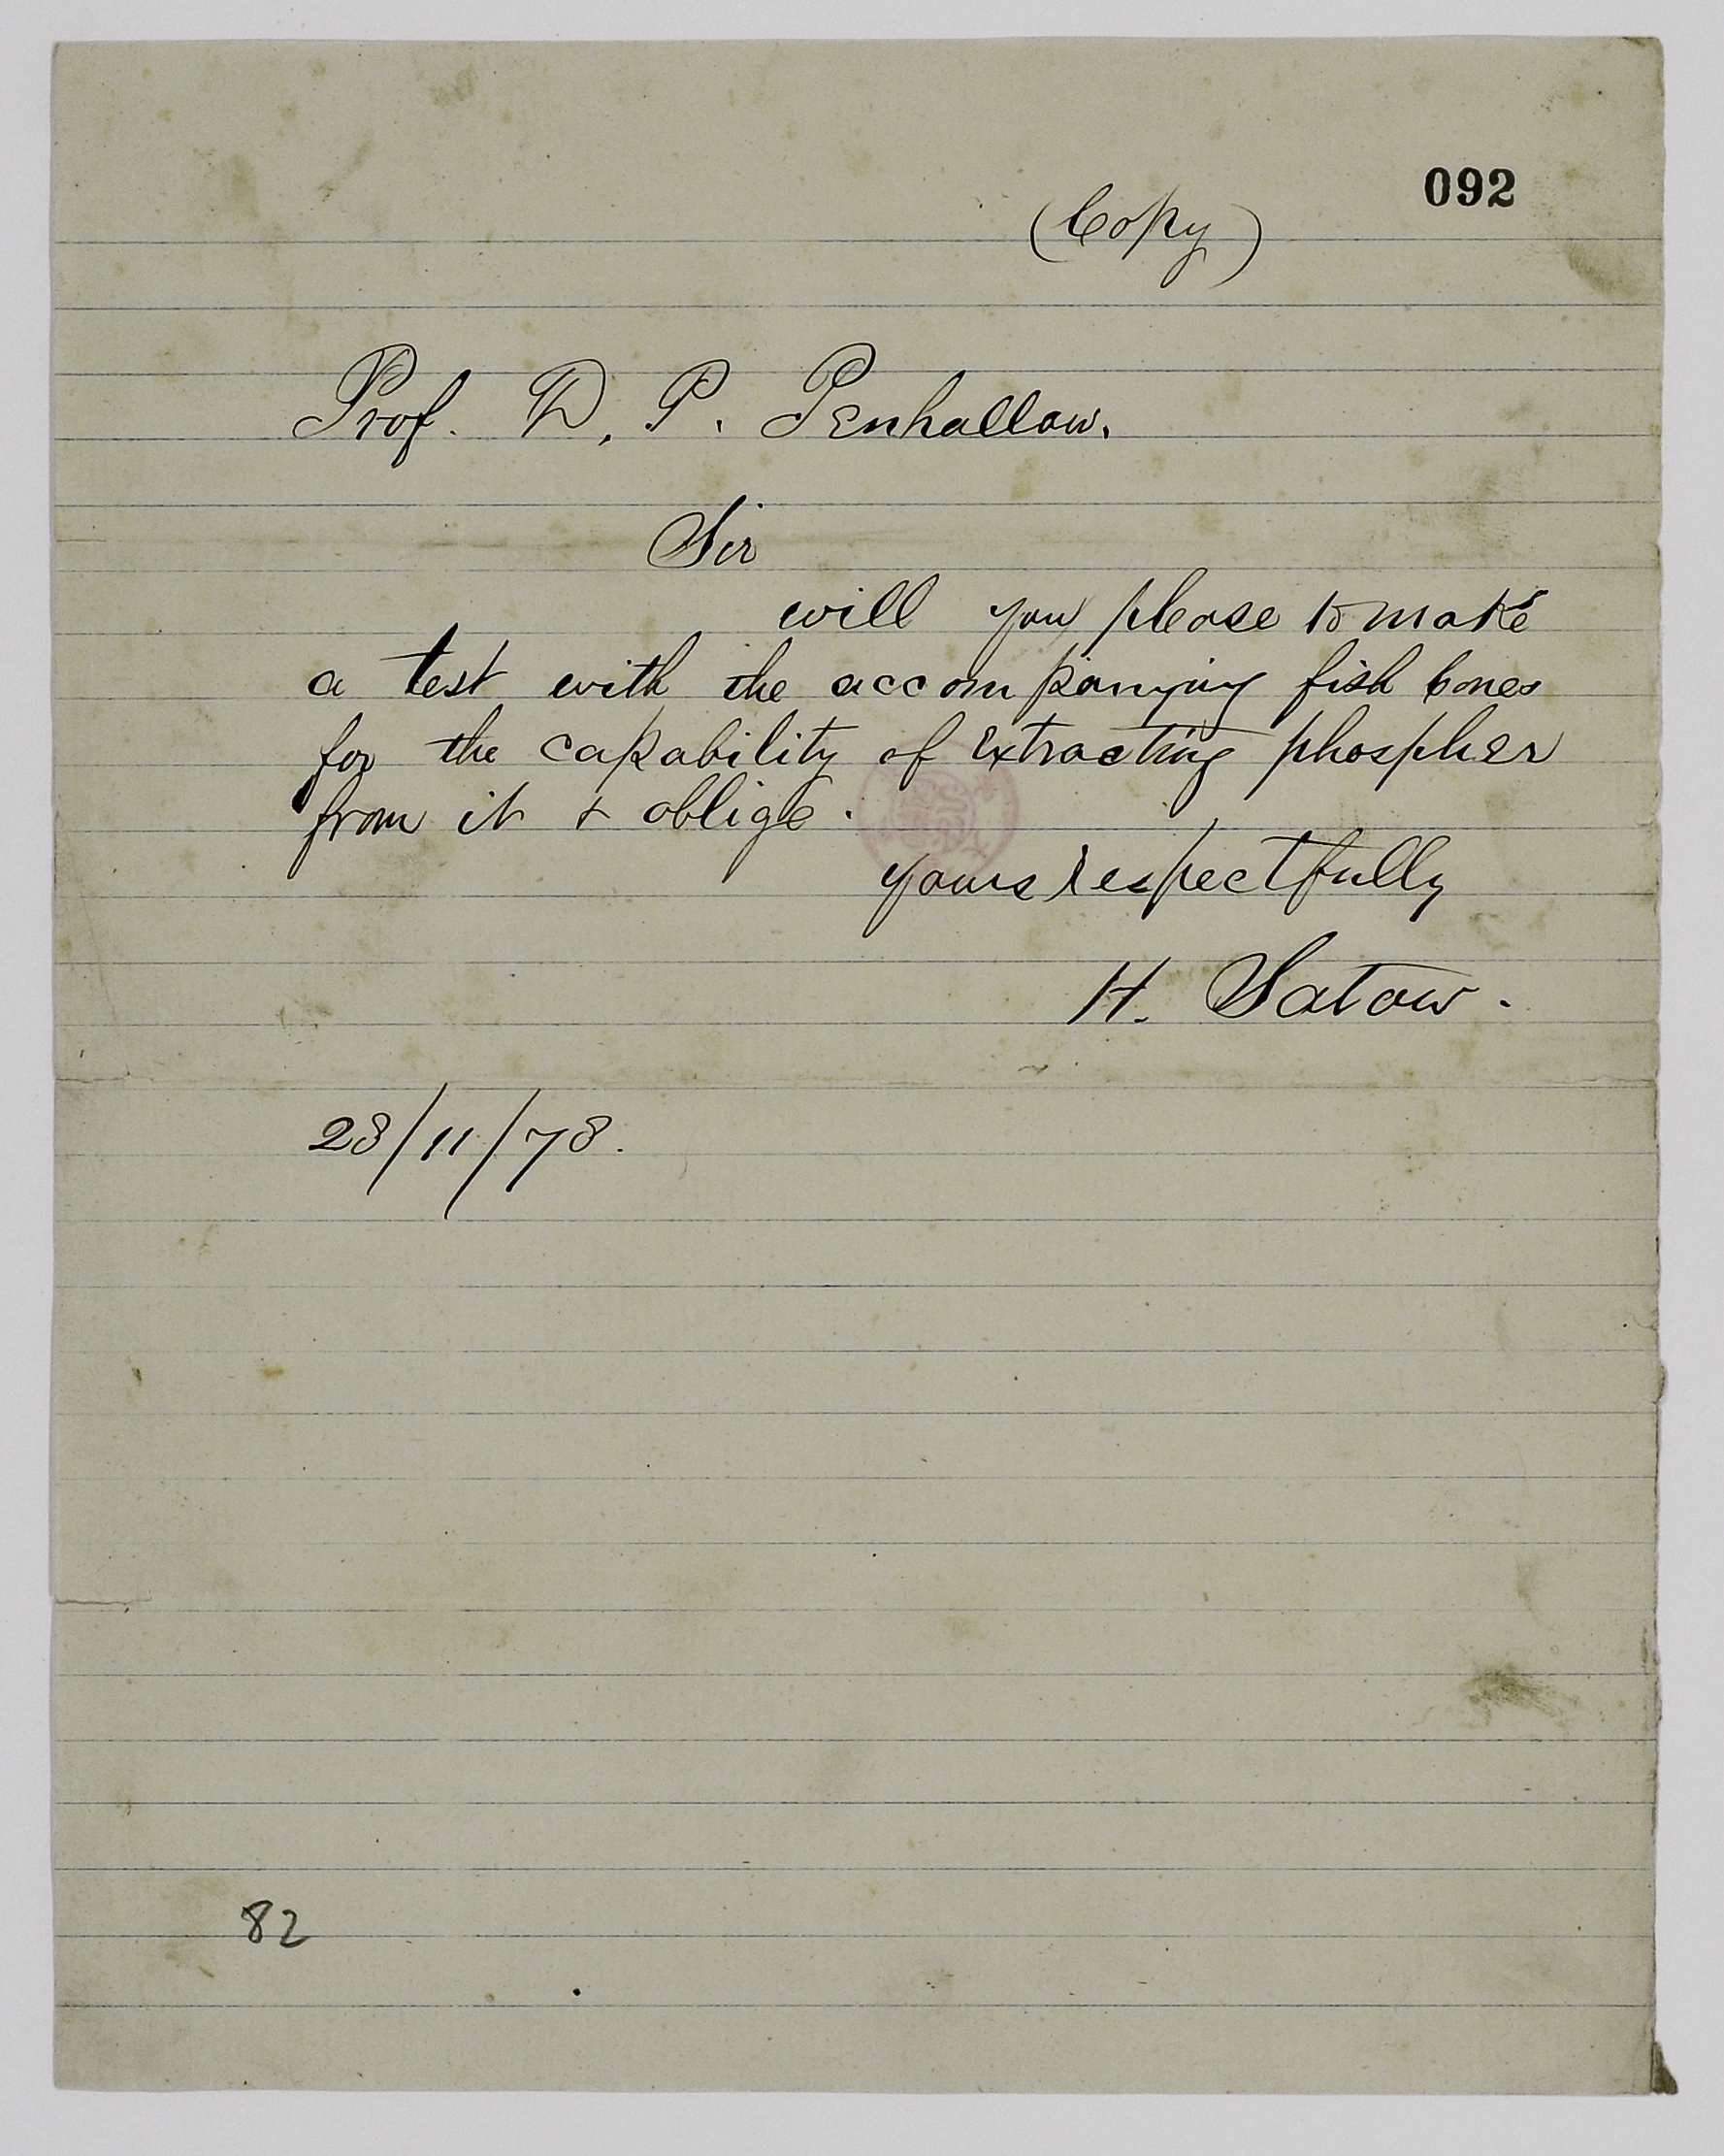 092
(Copy)
Prof. D. P. Penhallow.
Sir
will you please to make
a test with the accompanying fish bones
for the capability of extracting phospher
from it & oblige.
yours respectfully
H. Satow.
28/11/78.
82